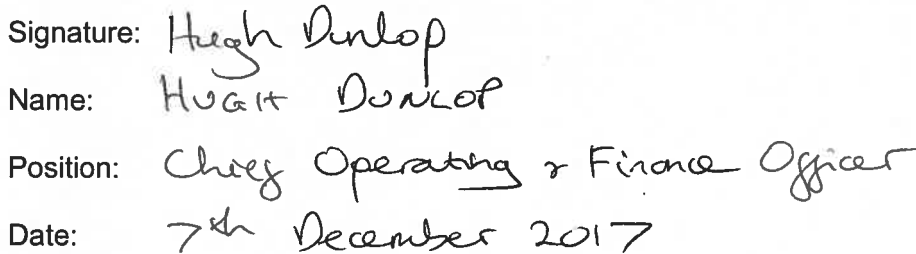 Signature: Hugh Dunlop
Name: HUGH DUNLOP
Position: Chief Operating & Finance Officer
Date: 7th December 2017